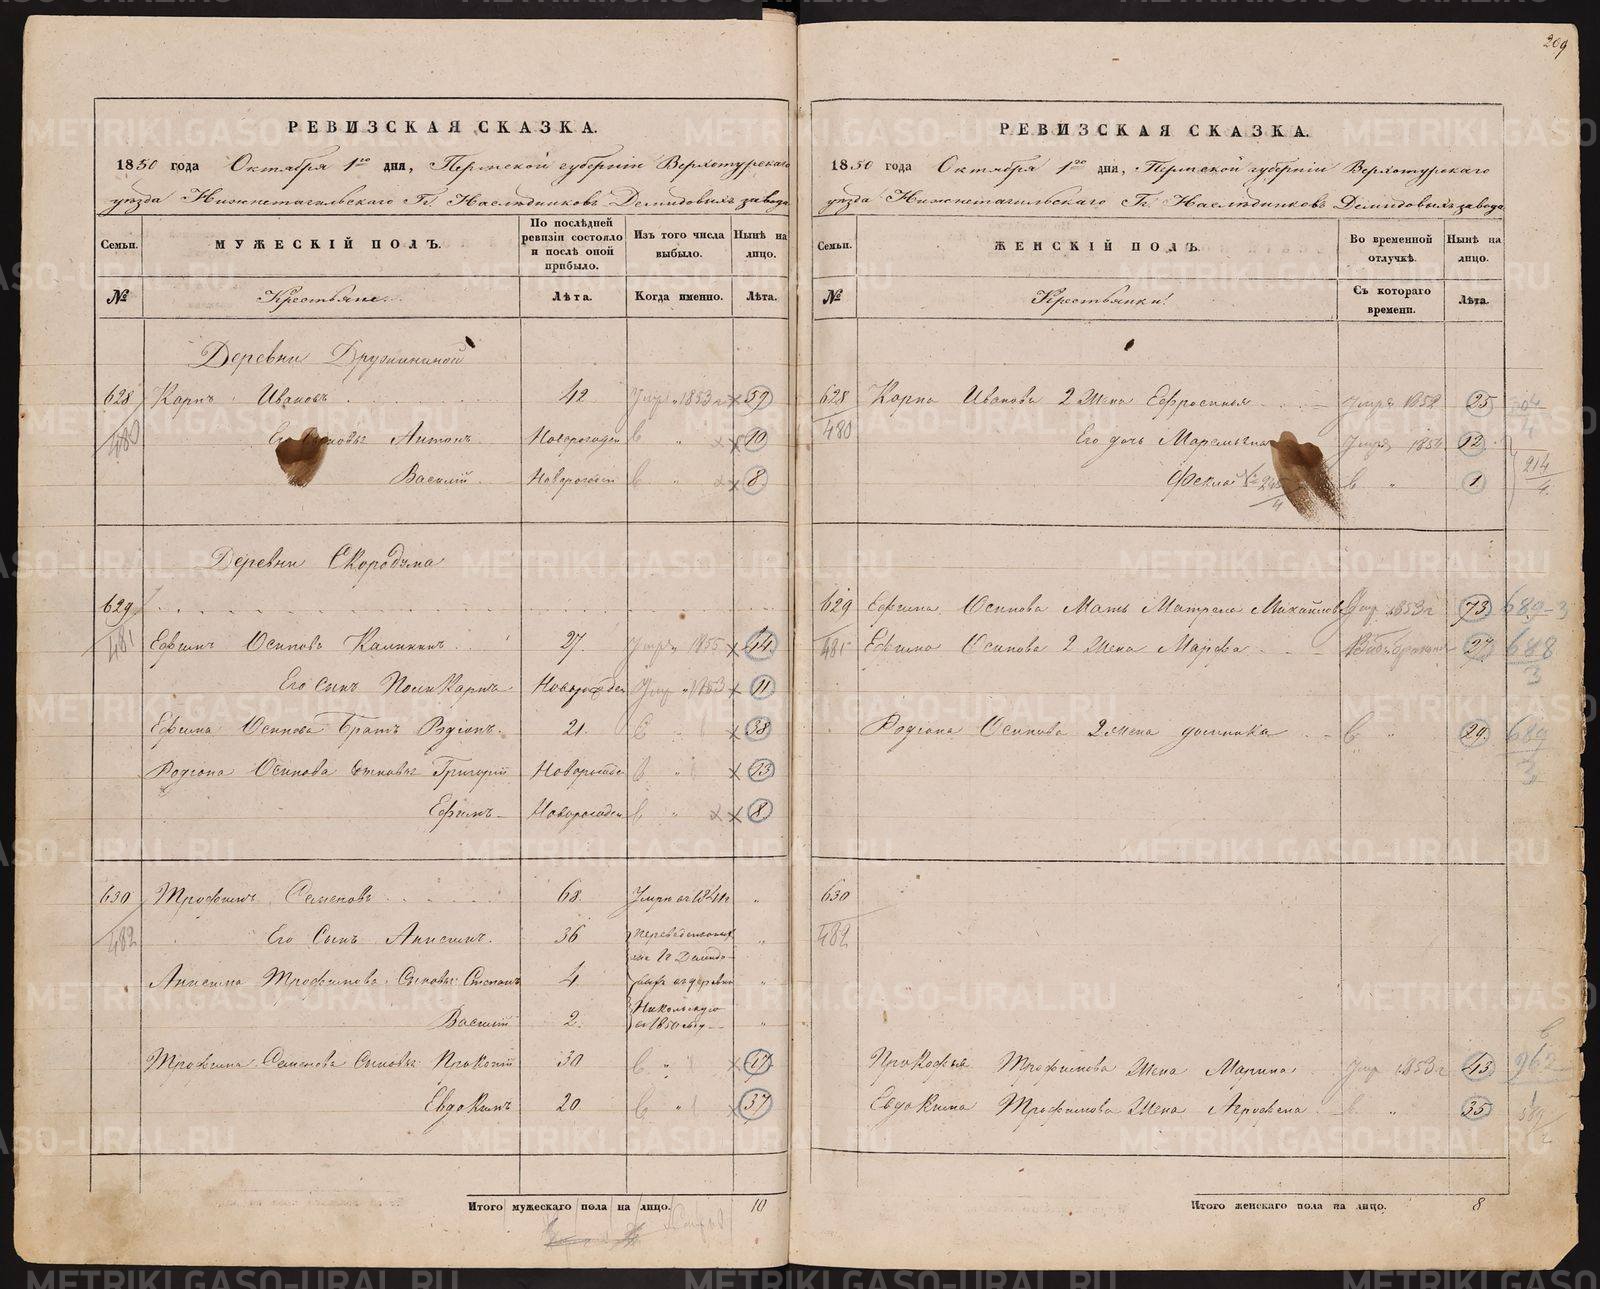 209
РЕВИЗСКАЯ СКАЗКА.
1850 года Октября 1го дня, Пермской губернии Верхотурскаго
уѣзда Нижнетагильскаго Гг. Наслѣдниковъ Демидовыхъ завода
Семьи. МУЖЕСКІЙ ПОЛЪ. По послѣдней ревизіи состояло и послѣ оной прибыло. Изъ того числа выбыло. Нынѣ на лицо.
№ Крестьяне. Лѣта. Когда именно. Лѣта.
Деревни Дружининой
628 Карпъ Ивановъ 42 1853 59
480 Его Антонъ Новорожден 10
Василій Новорожден 8
Деревни
629
481 Ефимъ Осиповъ 27. 1855 44
Его сынъ Поликарпъ Новорожден 1853 11
Ефима Осипова братъ Родіонъ. 21. 38
Родіона Осипова сыновья Григорій Новорожден 13
Ефимъ Новорожден 8
630 Трофимъ Семеновъ 68. Умръ въ 184
482 Его Сынъ Анисимъ. 36
Анисима Трофимова Сыновья Степанъ 4
Василій 2. Никольскую въ 1850 году
Трофима Семенова Сыновья Прокопій 30 47
Евдокимъ 20 37
Итого мужескаго пола на лицо. 10
РЕВИЗСКАЯ СКАЗКА.
1850 года Октября 1го дня, Пермской губерніи Верхотурскаго
уѣзда Нижнетагильскаго Гг. Наслѣдниковъ Демидовыхъ завода
Семьи. ЖЕНСКІЙ ПОЛЪ. Во временной отлучкѣ. Нынѣ на лицо.
№ Крестьянки. Съ котораго времени. Лѣта.
628 Карпа Иванова 2 Жена Ефросинья 1852 25
480 Его дочь 12
Фекла 1 214/4
629 Ефима Осипова Мать Матрена Михайлова 1853 73 689-3
481 Ефима Осипова 2 Жена Марфа 27 688/3
Родіона Осипова 2 жена 29 689/3
630
482
Прокофья Трофимова Жена Марина 1853 43 962
Евдокима Трофимова Жена Агрофена 35
Итого женскаго пола на лицо. 8
METRIKI.GASO-URAL.RU